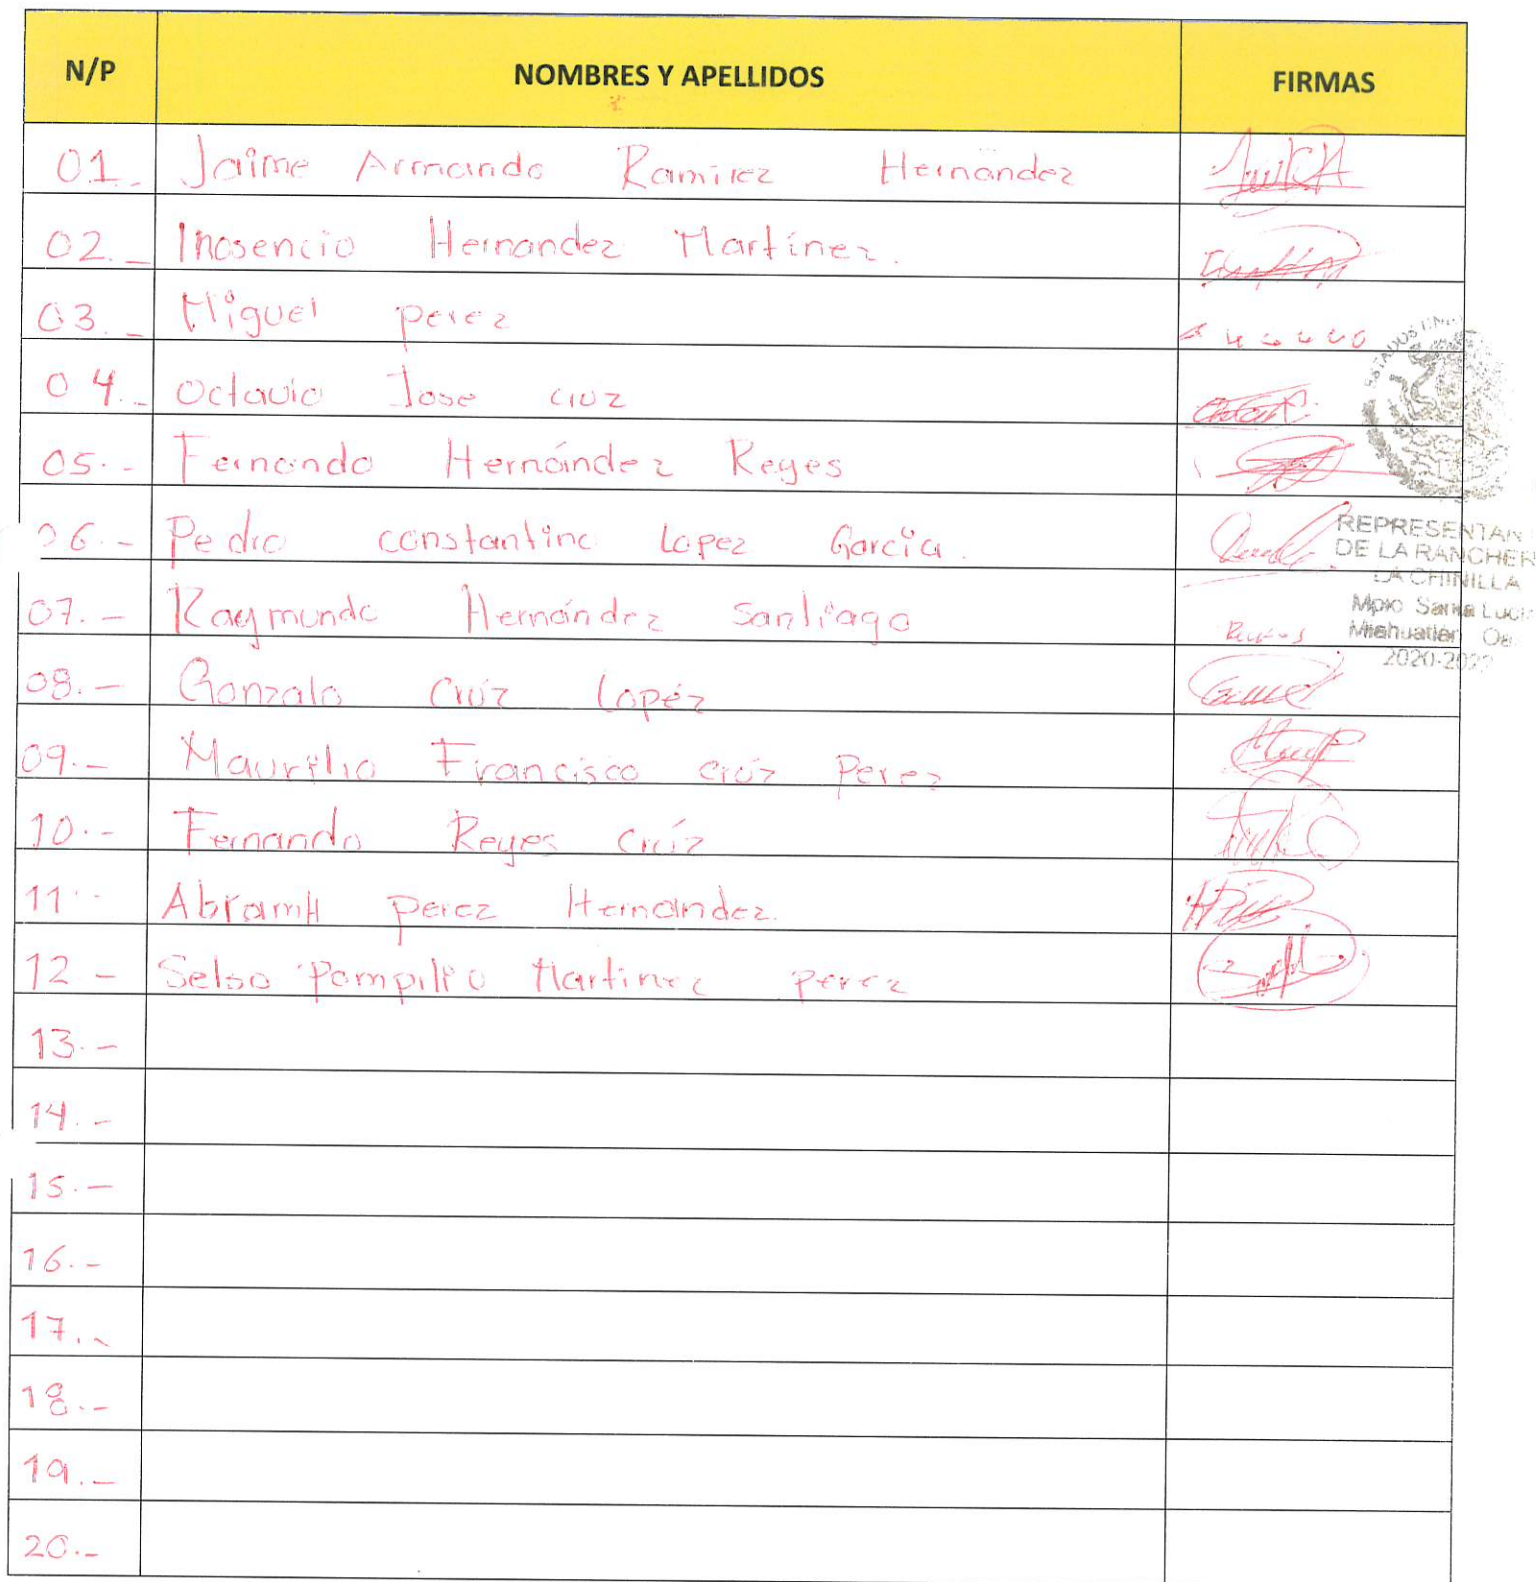 N/P NOMBRES Y APELLIDOS FIRMAS
01.- Jaime Armando Ramirez Hernández
02.- Inosencio Hernandez Martínez.
03.- Miguel perez
04.- Octavio Jose cruz
05.- Fernando Hernández Reyes
06.- Pedro constantino Lopez García.
07.- Raymundo Hernández Santiago
08.- Gonzalo Crúz Lopéz
09.- Maurilio Francisco crúz Perez
10.- Fernando Reyes Crúz
11.- AbramH perez Hernandez.
12 - Selso Pompilio Martinez perez
13.-
14.-
15.-
16.-
17.-
18.-
19.-
20.-
ESTADOS
REPRESENTAN
DE LA RANCHER
LA CHINILLA
Mpio Santa Lucí
Miahuatlán Oa
2020-2022